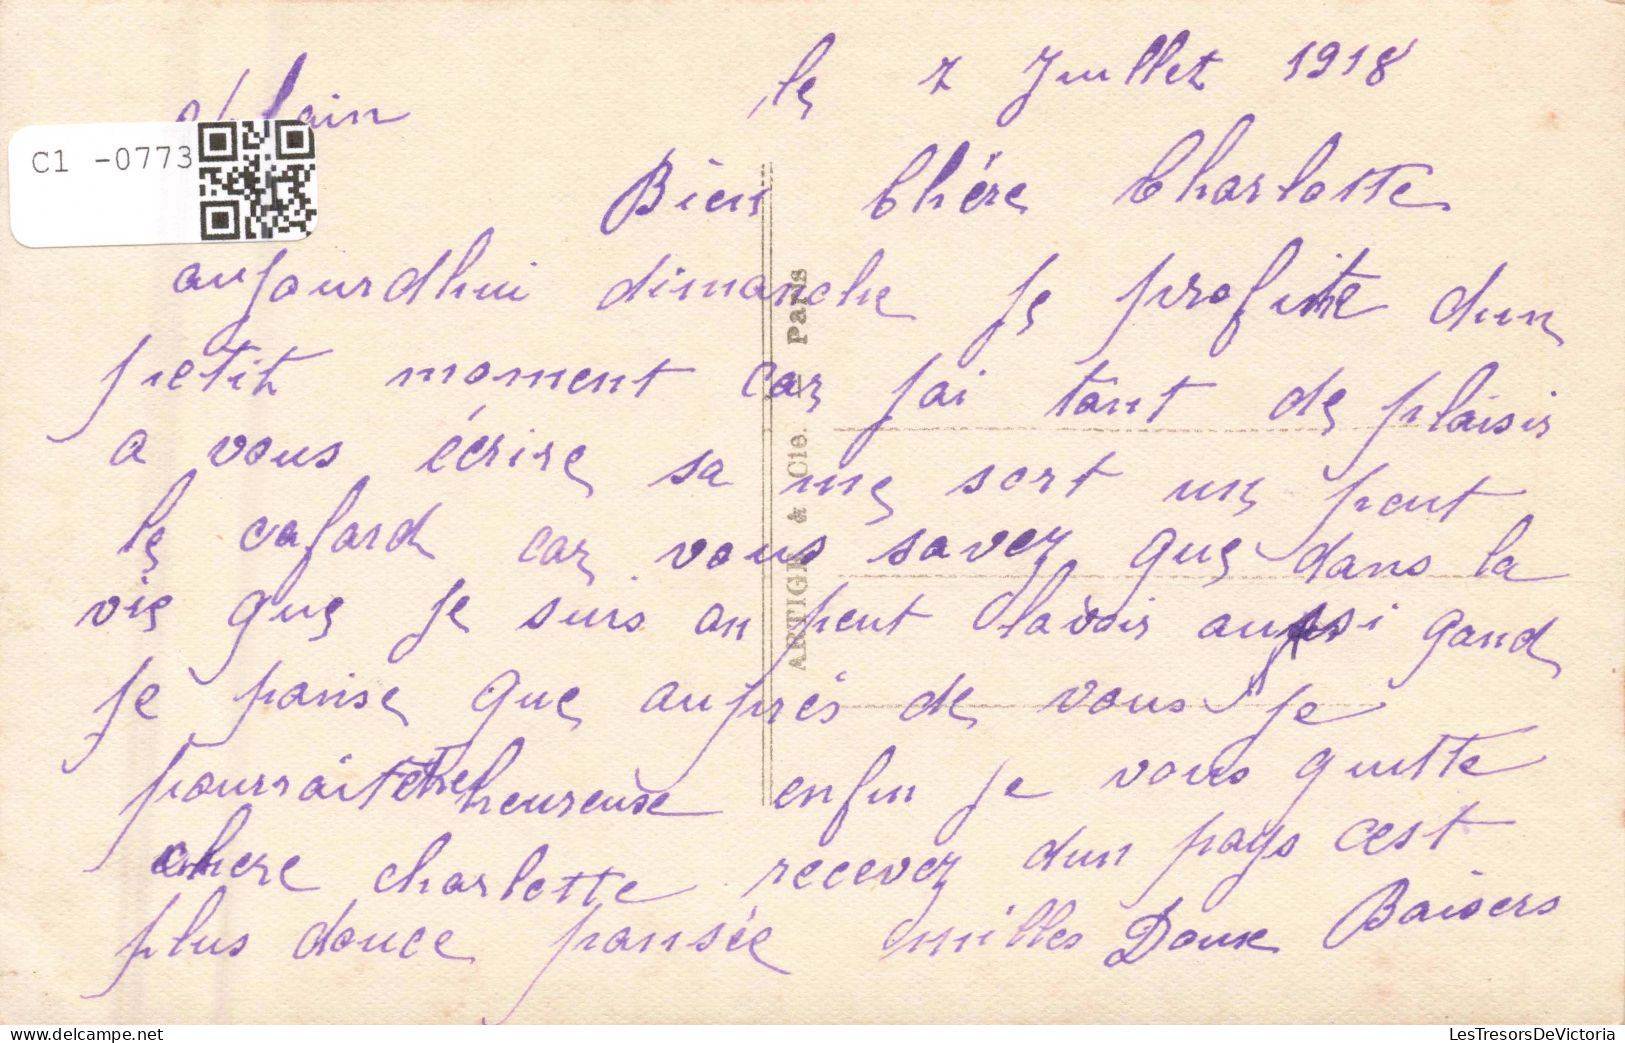 le 7 Juillet 1918
C1 -0773
Bien Chére Charlotte
aujourdhui dimanche je profite dun
petit moment car jai tant de plaisir
a vous écrire sa me sort un peut
le cafard car vous savez que dans la
vie que je suis on peut lavoir aussi gand
je panse que auprés de vous je
pourrait etre heureuse enfin je vous quitte
chere charlotte recevez dun pays cest
plus douce pansée milles Doux Baisers
ARTIGE & Cie. — Paris
LesTresorsDeVictoria
www.delcampe.net